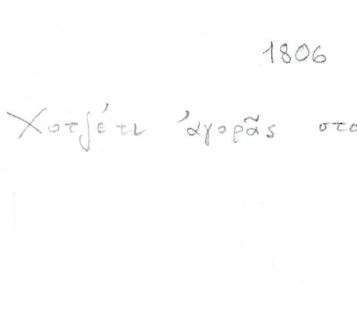 1806
Χοτζέτι ἀγορᾶς στο